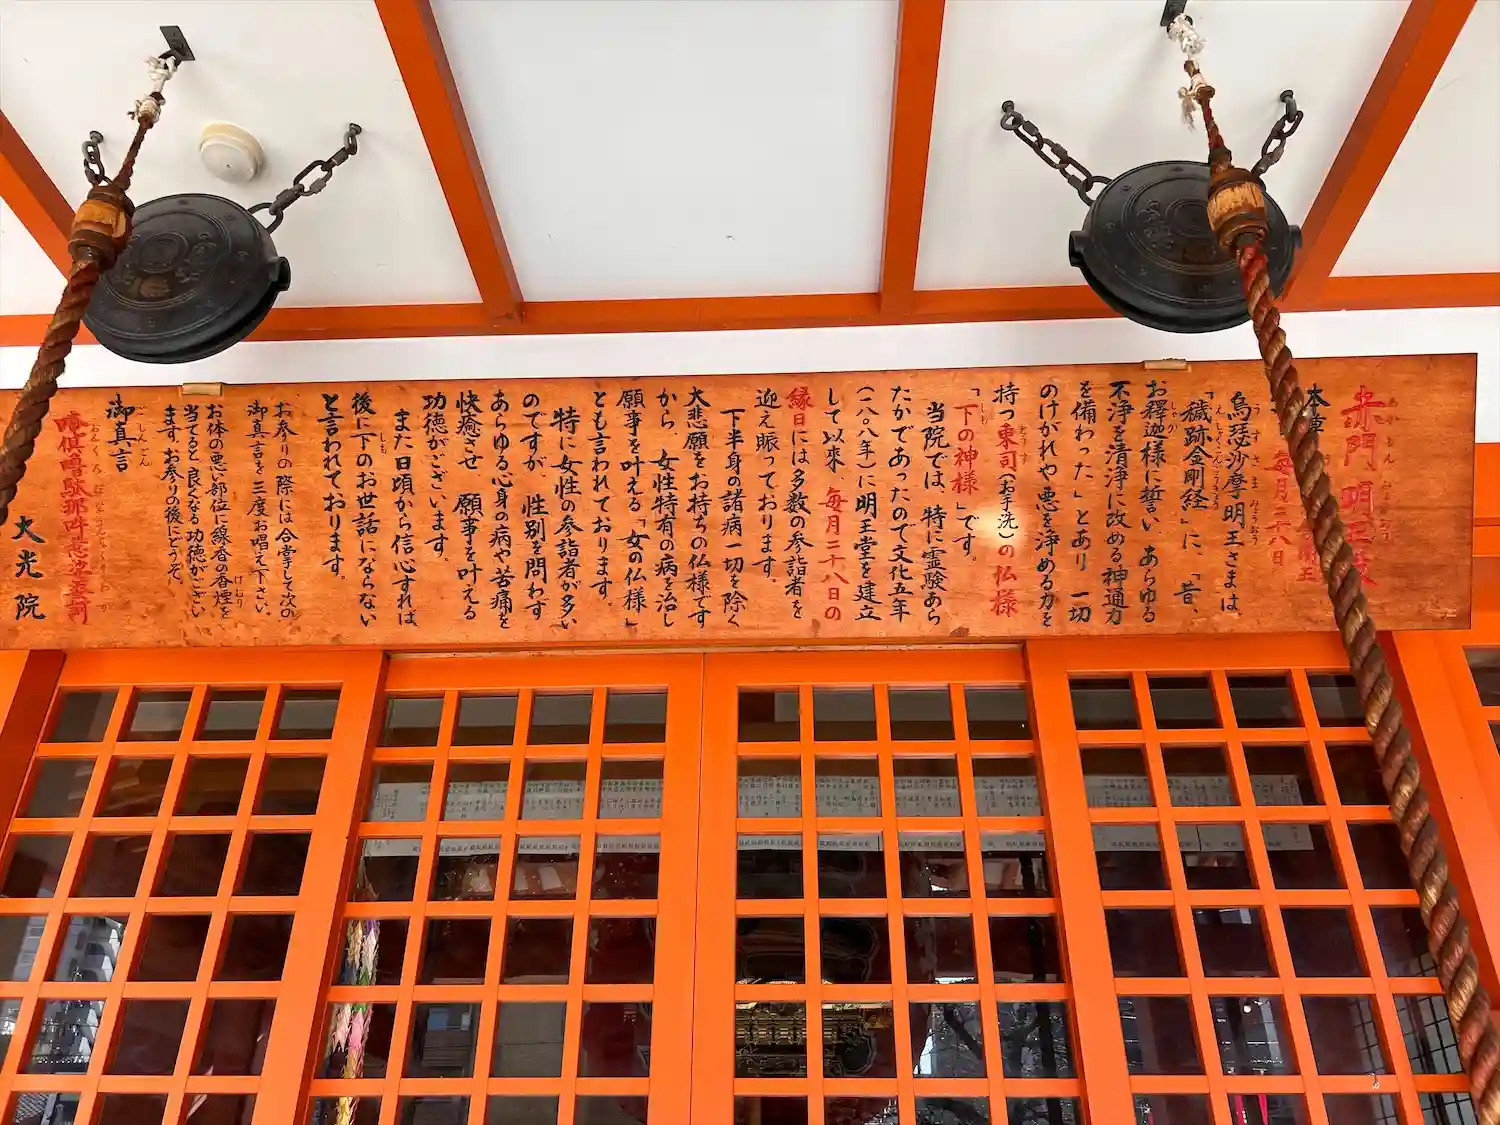 赤門 明王殿
本尊
毎月二十八日
烏瑟沙摩明王さまは、
「穢跡金剛経」に、「昔、
お釋迦様に誓い あらゆる
不浄を清浄に改める神通力
を備わった」とあり 一切
のけがれや悪を浄める力を
持つ東司(お手洗)の仏様
「下の神様」です。
当院では、特に霊験あら
たかであったので文化五年
(一八〇八年)に明王堂を建立
して以来、毎月二十八日の
縁日には多数の参詣者を
迎え賑っております。
下半身の諸病一切を除く
大悲願をお持ちの仏様です
から、女性特有の病を治し
願事を叶える「女の仏様」
とも言われております。
特に女性の参詣者が多い
のですが、性別を問わず
あらゆる心身の病や苦痛を
快癒させ 願事を叶える
功徳がございます。
また日頃から信心すれば
後に下のお世話にならない
と言われております。
お参りの際には合掌して次の
御真言を三度お唱え下さい。
お体の悪い部位に線香の香煙を
当てると良くなる功徳がござい
ます。お参りの後にどうぞ。
御真言
大光院